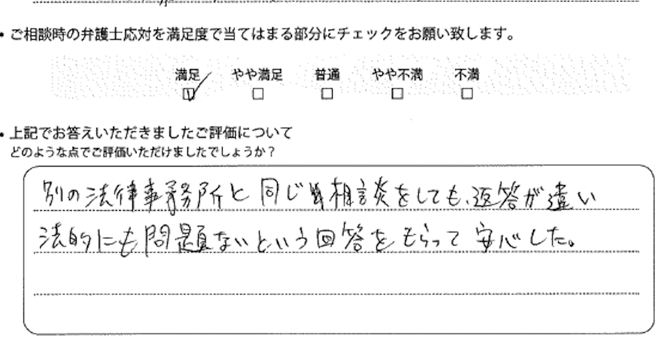 ・ご相談時の弁護士応対を満足度で当てはまる部分にチェックをお願い致します。
満足 やや満足 普通 やや不満 不満
・上記でお答えいただきましたご評価について
どのような点でご評価いただけましたでしょうか？
別の法律事務所と同じ相談をしても、返答が違い
法的にも問題ないという回答をもらって安心した。